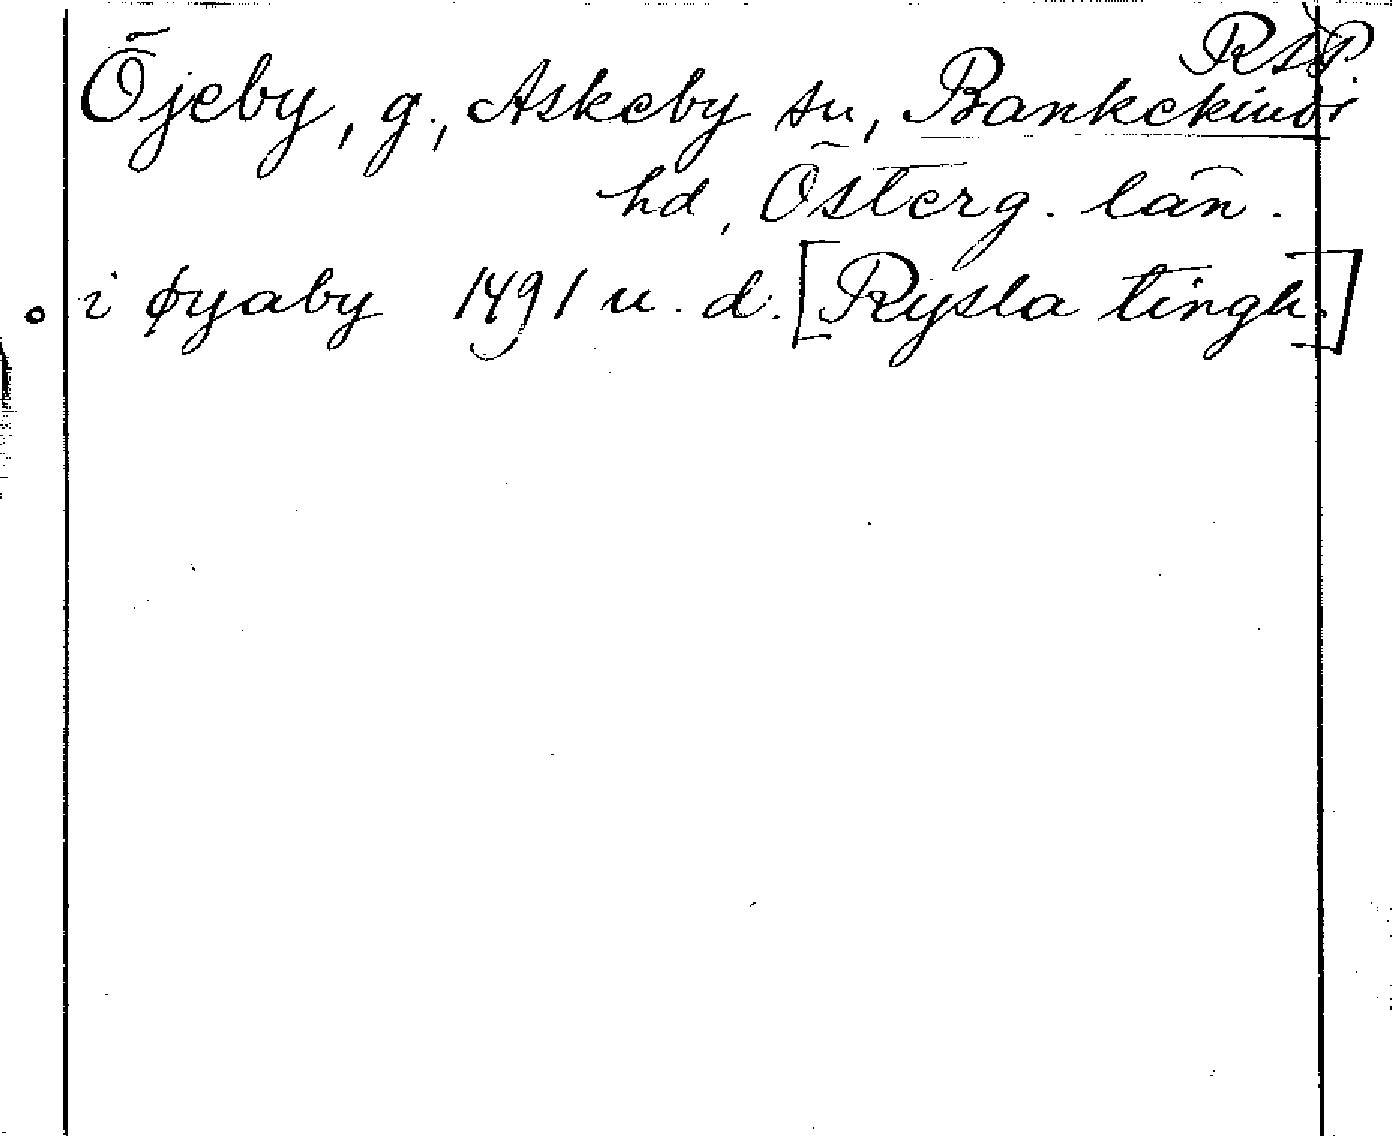 RAP
Öjeby, g., Askeby sn, Bankekinds
hd, Österg. län.
i øyaby 1491 u. d. [Rysla tingh.]